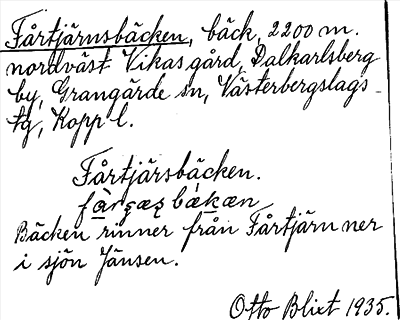 Fårtjärnsbäcken, bäck, 2200 m.
nordväst Vikas gård, Dalkarlsberg
by, Grangärde sn, Västerbergslags
tg, Kopp l.
Fårtjärsbäcken.
bäkæn
Bäcken rinner från Fårtjärn ner
i sjön Jänsen.
Otto Blixt 1935.